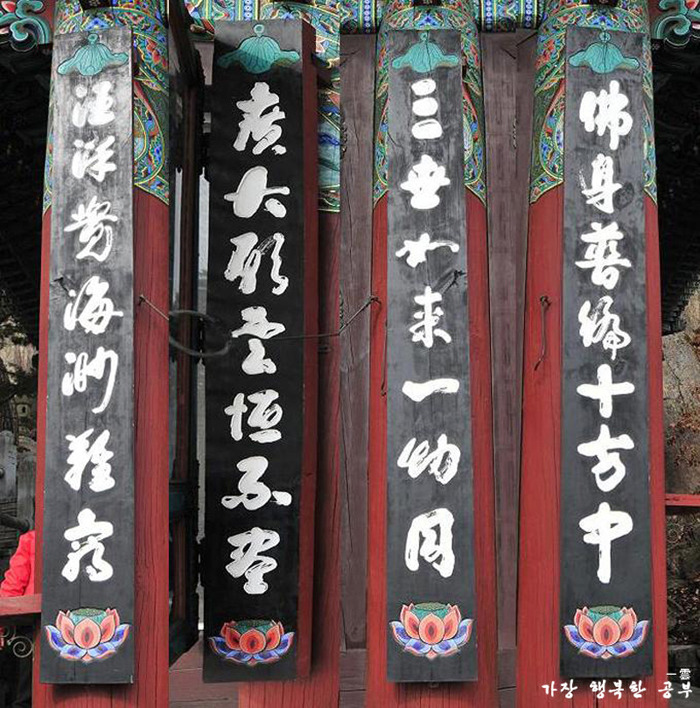 佛身普徧十方中
三世如来一體同
廣大願雲恒不盡
汪洋覺海渺難窮
一雲
가장 행복한 공부